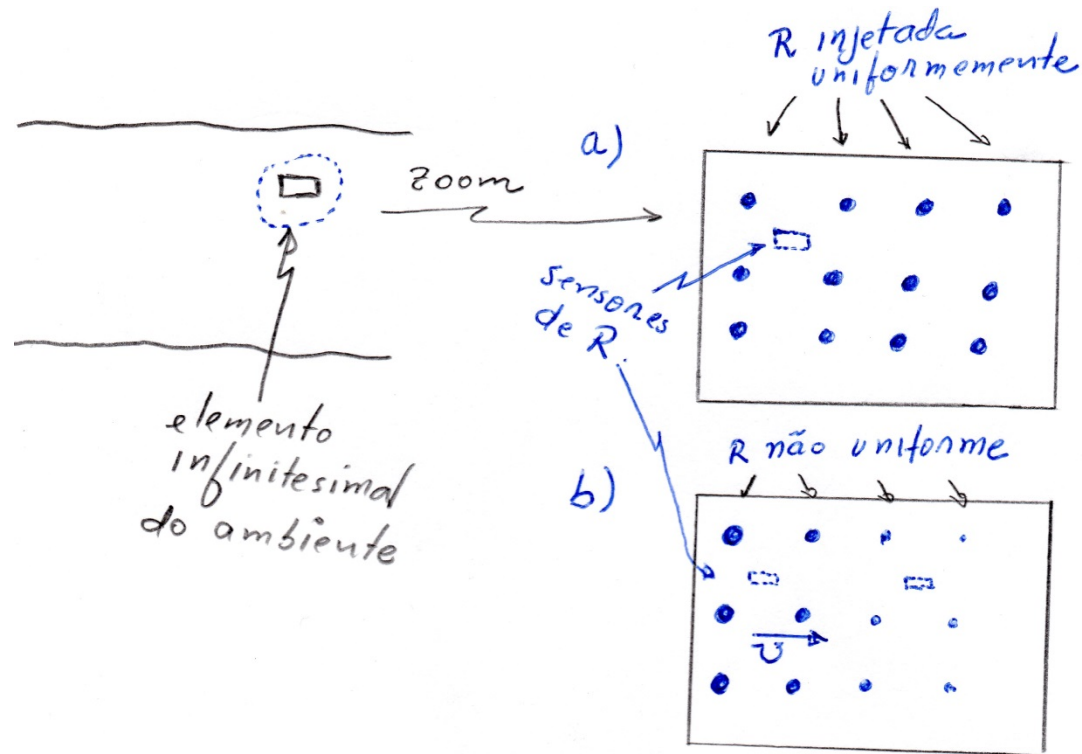 R injetada
uniformemente
a)
zoom
sensores
de R.
elemento
infinitesimal
do ambiente
R não uniforme
b)
v